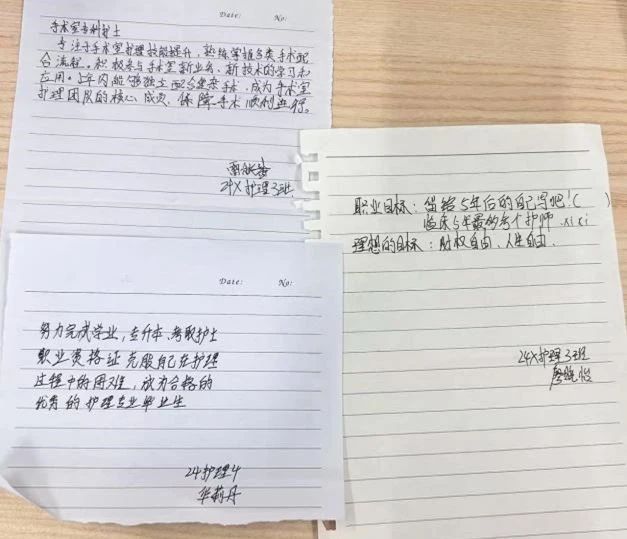 Date: No:
手术室专科护士
专注于手术室护理技能提升，熟练掌握各类手术配
合流程。积极参与手术室新业务、新技术的学习和
应用。5年内能够独立配合复杂手术，成为手术室
护理团队的核心成员，保障手术顺利进行。
24X护理3班
职业目标：留给5年后的自己写吧！( )
临床5年最多考个护师 .xixi
理想的目标：财权自由、人生自由.
24X护理3班
Date: No:
努力完成学业，专升本、考取护士
职业资格证 克服自己在护理
过程中的困难，成为合格的
优秀的护理专业毕业生
24护理4
华莉丹